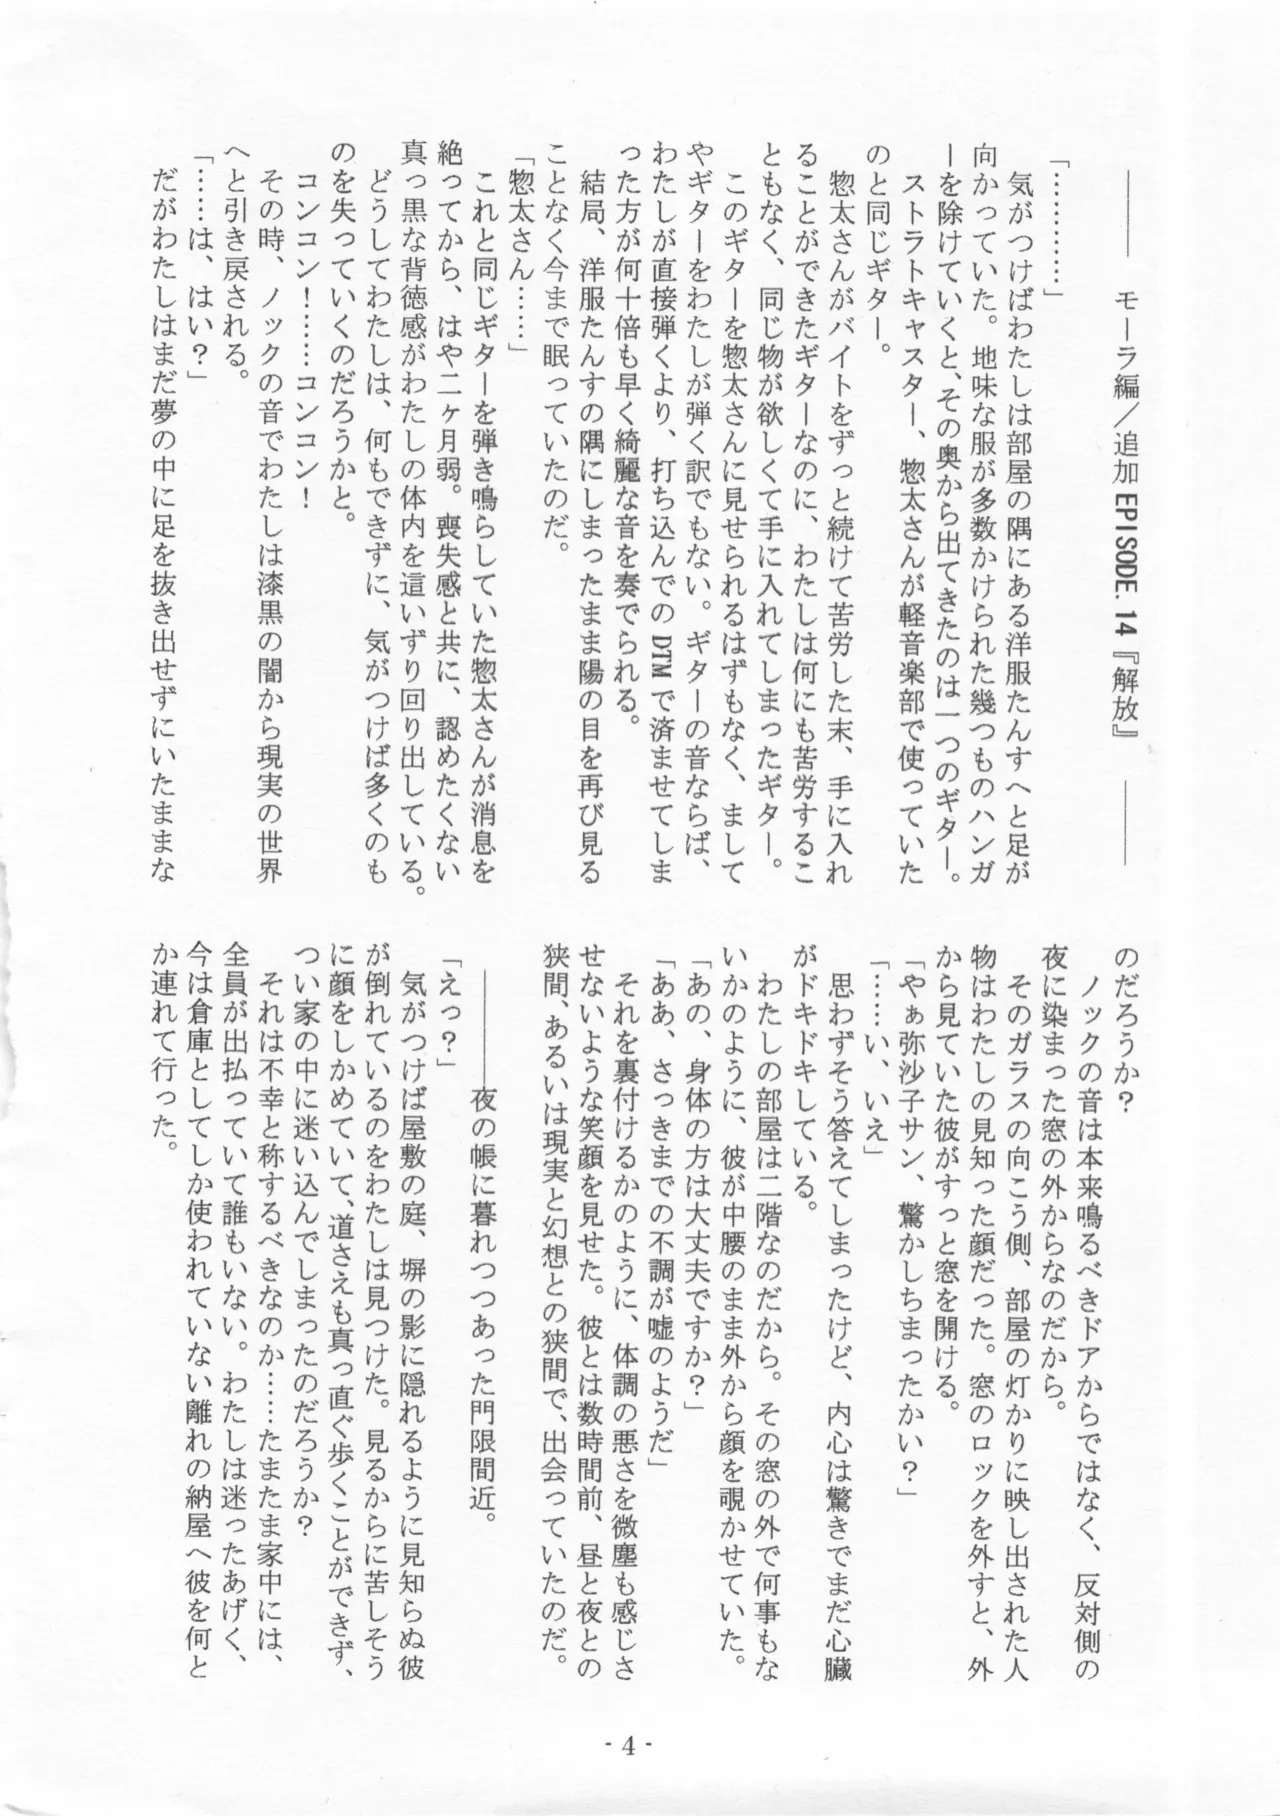 ――― モーラ編／追加 EPISODE. 14『解放』 ―――
「…………」
気がつけばわたしは部屋の隅にある洋服たんすへと足が
向かっていた。地味な服が多数かけられた幾つものハンガ
ーを除けていくと、その奥から出てきたのは一つのギター。
ストラトキャスター、惣太さんが軽音楽部で使っていた
のと同じギター。
惣太さんがバイトをずっと続けて苦労した末、手に入れ
ることができたギターなのに、わたしは何にも苦労するこ
ともなく、同じ物が欲しくて手に入れてしまったギター。
このギターを惣太さんに見せられるはずもなく、まして
やギターをわたしが弾く訳でもない。ギターの音ならば、
わたしが直接弾くより、打ち込んでの DTM で済ませてしま
った方が何十倍も早く綺麗な音を奏でられる。
結局、洋服たんすの隅にしまったまま陽の目を再び見る
ことなく今まで眠っていたのだ。
「惣太さん……」
これと同じギターを弾き鳴らしていた惣太さんが消息を
絶ってから、はや二ヶ月弱。喪失感と共に、認めたくない
真っ黒な背徳感がわたしの体内を這いずり回り出している。
どうしてわたしは、何もできずに、気がつけば多くのも
のを失っていくのだろうかと。
コンコン！……コンコン！
その時、ノックの音でわたしは漆黒の闇から現実の世界
へと引き戻される。
「……は、はい？」
だがわたしはまだ夢の中に足を抜き出せずにいたままな
のだろうか？
ノックの音は本来鳴るべきドアからではなく、反対側の
夜に染まった窓の外からなのだから。
そのガラスの向こう側、部屋の灯かりに映し出された人
物はわたしの見知った顔だった。窓のロックを外すと、外
から見ていた彼がすっと窓を開ける。
「やぁ弥沙子サン、驚かしちまったかい？」
「……い、いえ」
思わずそう答えてしまったけど、内心は驚きでまだ心臓
がドキドキしている。
わたしの部屋は二階なのだから。その窓の外で何事もな
いかのように、彼が中腰のまま外から顔を覗かせていた。
「あの、身体の方は大丈夫ですか？」
「ああ、さっきまでの不調が嘘のようだ」
それを裏付けるかのように、体調の悪さを微塵も感じさ
せないような笑顔を見せた。彼とは数時間前、昼と夜との
狭間、あるいは現実と幻想との狭間で、出会っていたのだ。
―――夜の帳に暮れつつあった門限間近。
「えっ？」
気がつけば屋敷の庭、塀の影に隠れるように見知らぬ彼
が倒れているのをわたしは見つけた。見るからに苦しそう
に顔をしかめていて、道さえも真っ直ぐ歩くことができず、
つい家の中に迷い込んでしまったのだろうか？
それは不幸と称するべきなのか……たまたま家中には、
全員が出払っていて誰もいない。わたしは迷ったあげく、
今は倉庫としてしか使われていない離れの納屋へ彼を何と
か連れて行った。
- 4 -